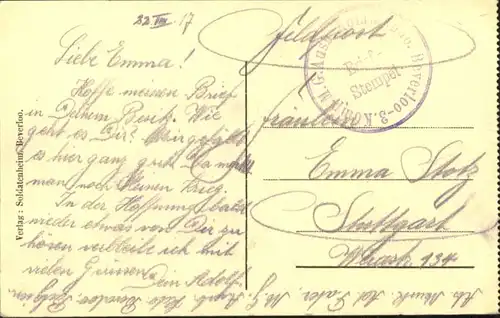 22 VII 17
Feldpost
Liebe Emma!
Hoffe meinen Brief
in Deinem Besitz. Wie
geht es Dir? Mir gefällt
es hier ganz gut. Da
man noch kleinen Krieg.
In der Hoffnung bald
wieder etwas von Dir zu
hören verbleibe ich mit
vielen Grüssen
Dein Adolf.
Fräulein
Emma Stolz
Stuttgart
134
Brief-
Stempel
Beverloo
Verlag: Soldatenheim Beverloo.
Abs. Musk. Beverloo, Belgien